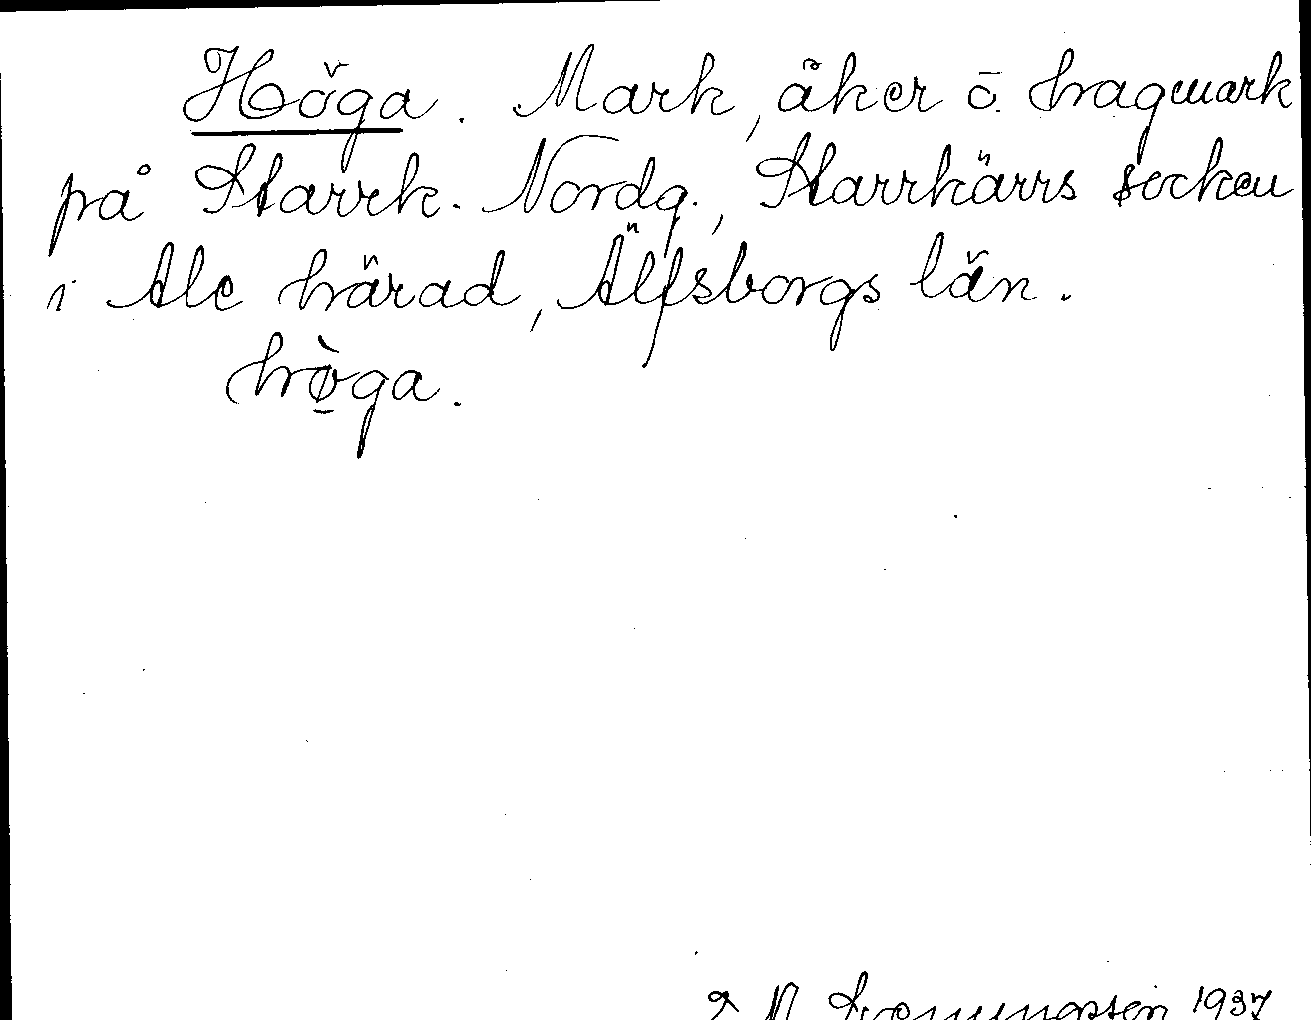 Höga. Mark, åker o. hagmark
på Starrk. Nordg., Starrkärrs socken
i Ale härad, Älfsborgs län.
hø̀ga.
1937